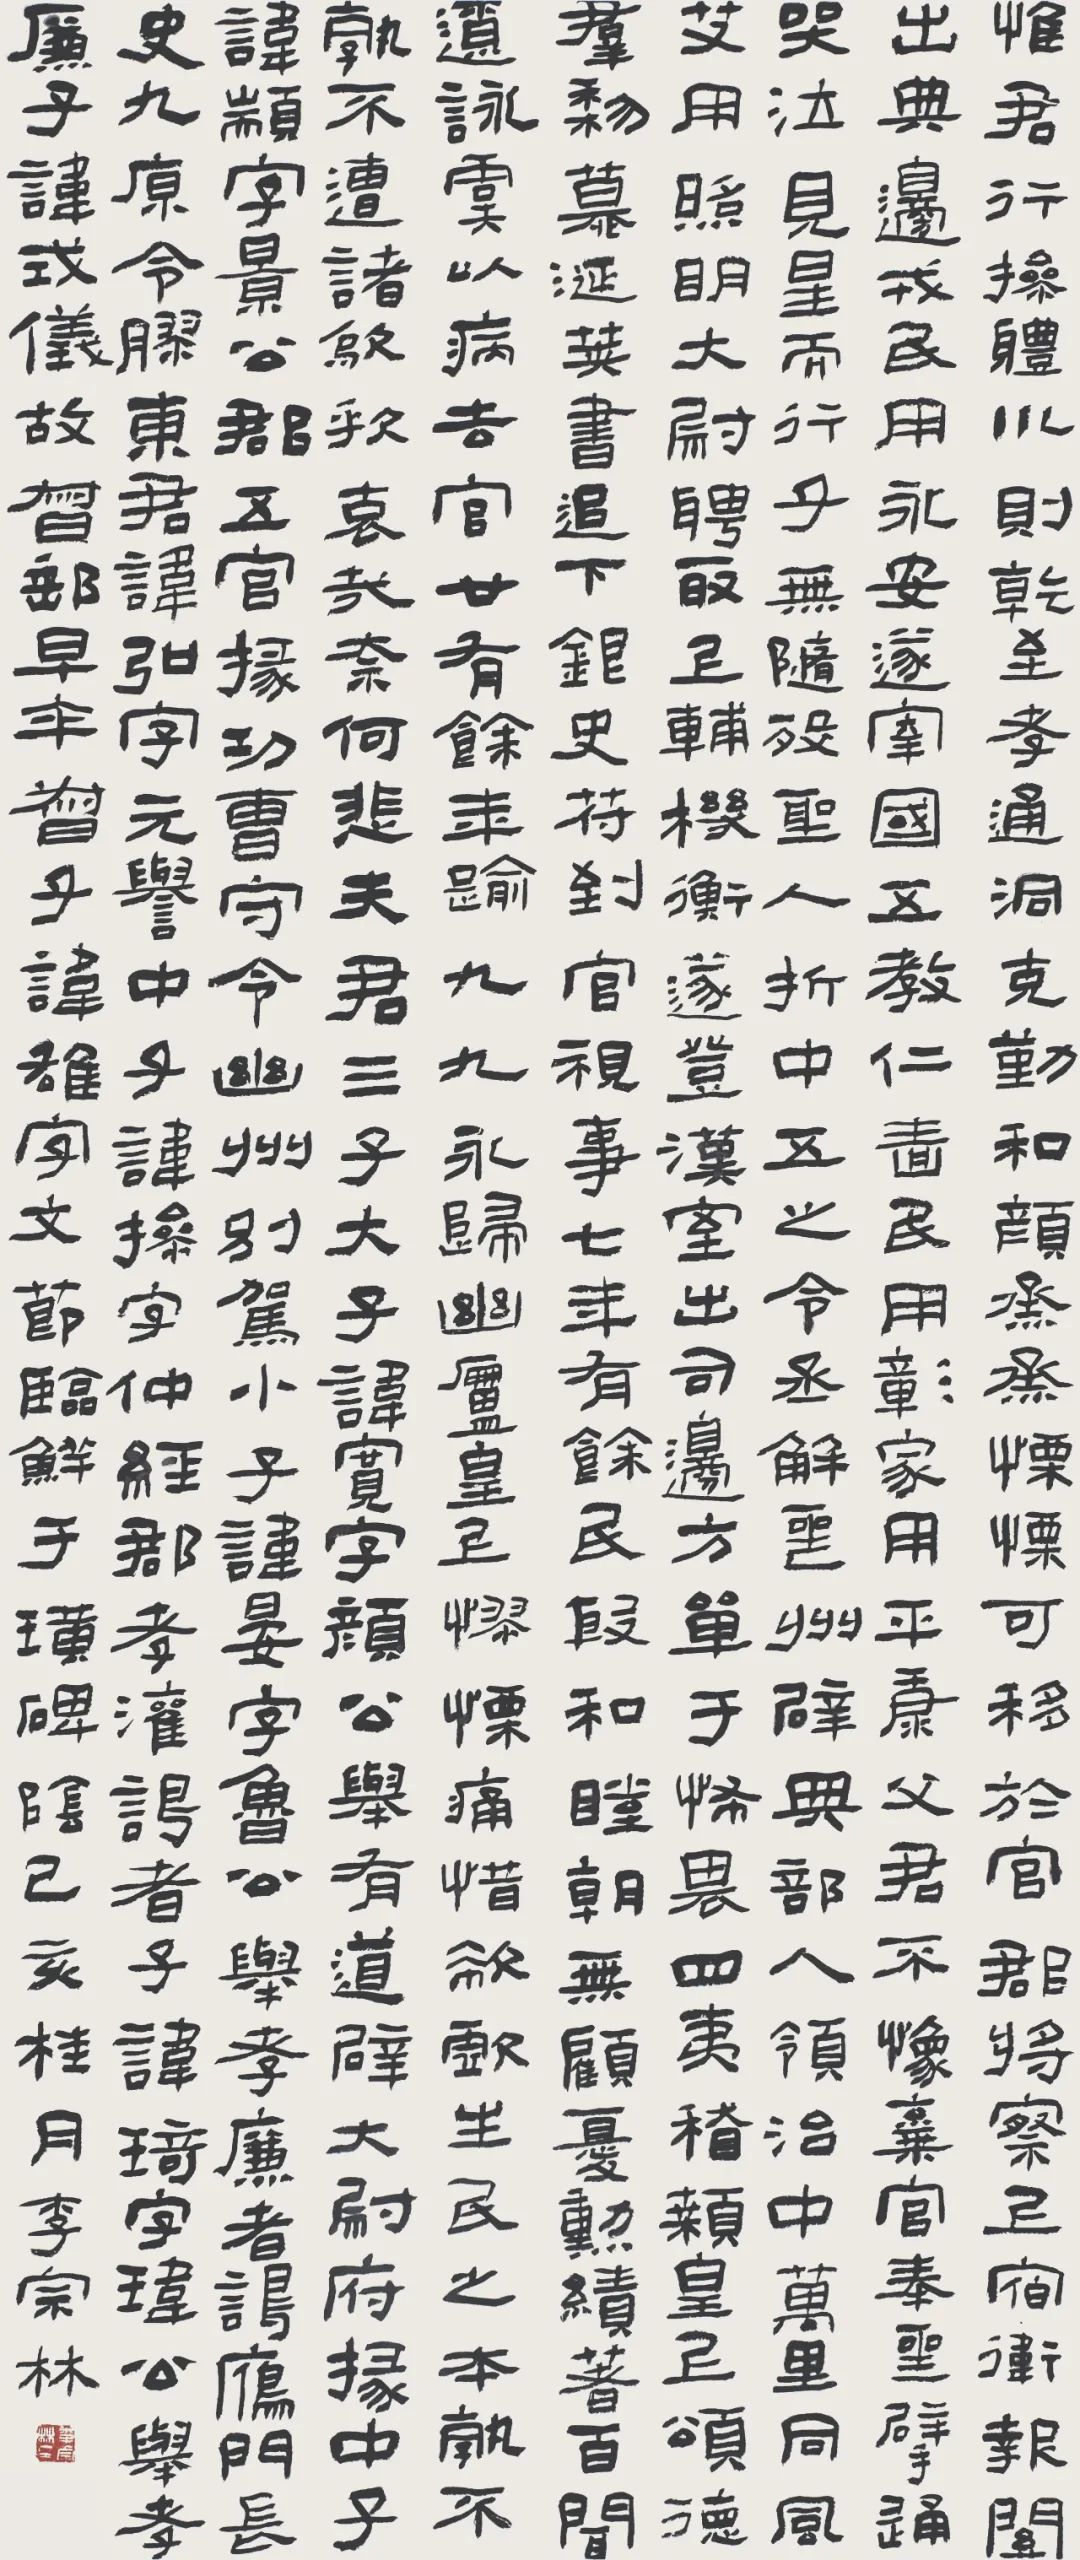 惟君行操體川則乾至孝通洞克勤和顏烝烝慄慄可移於官郡將察上宿衛報關
出典邊戎民用永安遂宰國五教仁嗇民用彰家用平康父君不像棄官奉喪擗踊
哭泣見星而行子無隨歿聖人折中五之令丞解喪州辟典部入領治中萬里同風
艾用照明大尉聘取上輔機衡遂登漢室出司邊方單于怖畏四夷稽顙皇上頌德
羣黎慕涎策書追下銀史符到官視事七年有餘民殷和睦朝無顧憂勳績著百聞
遼詠虞以病去官廿有餘年踰九九永歸幽廬皇上憀慄痛惜欷歔生民之本孰不
孰不遭諸欿歟哀哉奈何悲夫君三子大子諱寬字顏公舉有道辟大尉府掾中子
諱顓字景公郡五官掾功曹守令幽州別駕小子諱晏字魯公舉孝廉者謁鴈門長
史九原令膠東君諱弘字元譽中子諱操字仲經郡孝灌謁者子諱琦字瑋公舉孝
廉子諱式儀故督郵早卒督子諱雄字文節臨鮮于璜碑陰己亥桂月李宗林